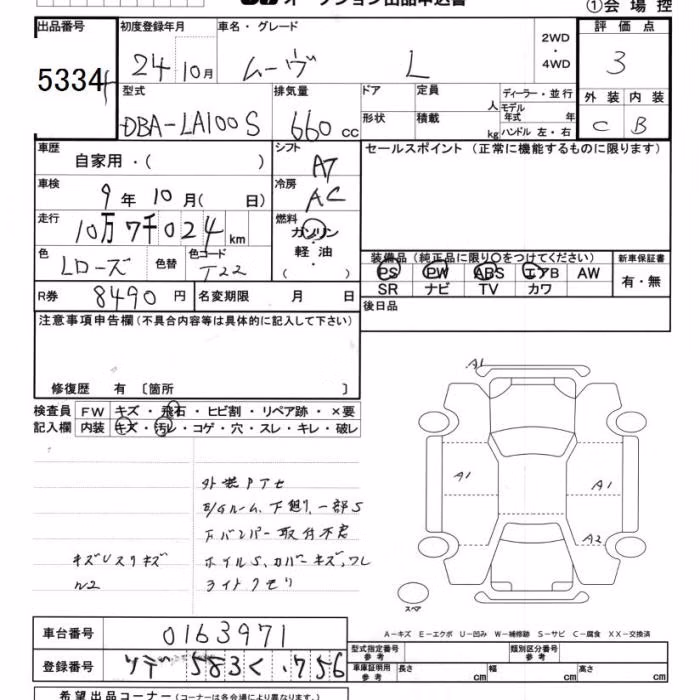 オークション出品申込書
①会場控
出品番号 初度登録年月 車名・グレード 2WD・4WD 評価点
5334 24年10月 ムーヴ L 3
型式 排気量 ドア 定員 人 ディーラー・並行 外装 内装
DBA-LA100S 660cc 形状 積載 kg モデル年式 年 ハンドル 左・右 C B
車歴 自家用・( ) シフト AT セールスポイント (正常に機能するものに限ります)
車検 9年10月( 日) 冷房 AC
走行 10万7千024km 燃料 ガソリン・軽油・( )
色 Lローズ 色替 色コード T22 装備品 (純正品に限り○をつけてください) 新車保証書
PS PW ABS エアB AW 有・無
SR ナビ TV カワ
R券 8490円 名変期限 月 日 後日品
注意事項申告欄(不具合内容等は具体的に記入して下さい)
修復歴 有 〔箇所 〕
検査員 FW キズ・飛石・ヒビ割・リペア跡・×要
記入欄 内装 キズ・汚レ・コゲ・穴・スレ・キレ・破レ
A1
外装PアセE/Gルーム、下廻リ、一部S
下バンパー取付不良
キズUスリキズ ホイルS、カバーキズ、ワレ
ライトクモリ
A1 A1
A2
スペア
車台番号 0163971
登録番号 583く・756
A-キズ E-エクボ U-凹み W-補修跡 S-サビ C-腐食 XX-交換済
型式指定番号 参考 類別区分番号 参考
車庫証明用 参考 長さ cm 幅 cm 高さ cm
希望出品コーナー(コーナーは各会場により異なります。)